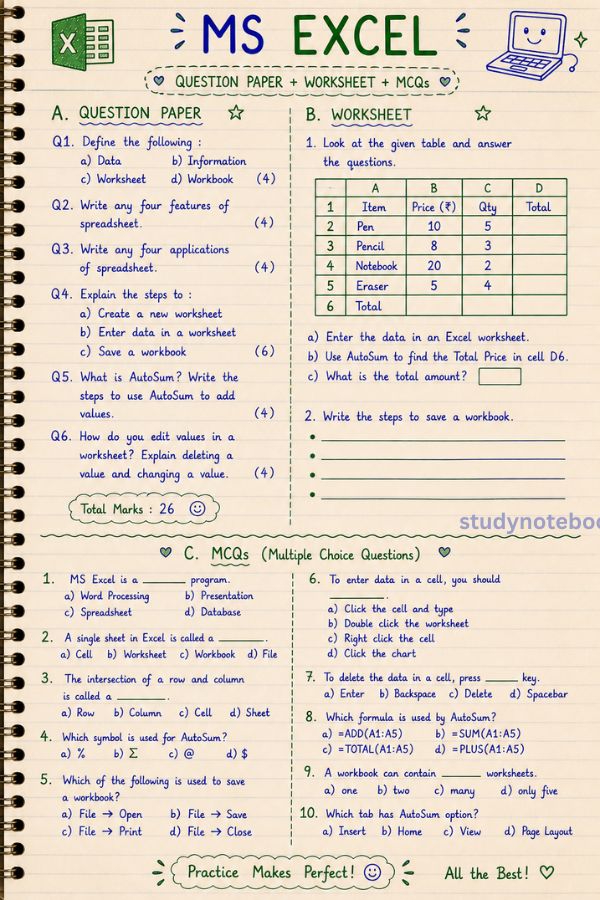 X
MS EXCEL
QUESTION PAPER + WORKSHEET + MCQs
A. QUESTION PAPER
Q1. Define the following :
a) Data b) Information
c) Worksheet d) Workbook (4)
Q2. Write any four features of
spreadsheet. (4)
Q3. Write any four applications
of spreadsheet. (4)
Q4. Explain the steps to :
a) Create a new worksheet
b) Enter data in a worksheet
c) Save a workbook (6)
Q5. What is AutoSum? Write the
steps to use AutoSum to add
values. (4)
Q6. How do you edit values in a
worksheet? Explain deleting a
value and changing a value. (4)
Total Marks : 26
B. WORKSHEET
1. Look at the given table and answer
the questions.
A B C D
1 Item Price (₹) Qty Total
2 Pen 10 5
3 Pencil 8 3
4 Notebook 20 2
5 Eraser 5 4
6 Total
a) Enter the data in an Excel worksheet.
b) Use AutoSum to find the Total Price in cell D6.
c) What is the total amount?
2. Write the steps to save a workbook.
studynoteboo
C. MCQs (Multiple Choice Questions)
1. MS Excel is a ________ program.
a) Word Processing b) Presentation
c) Spreadsheet d) Database
2. A single sheet in Excel is called a ________.
a) Cell b) Worksheet c) Workbook d) File
3. The intersection of a row and column
is called a ________.
a) Row b) Column c) Cell d) Sheet
4. Which symbol is used for AutoSum?
a) % b) Σ c) @ d) $
5. Which of the following is used to save
a workbook?
a) File → Open b) File → Save
c) File → Print d) File → Close
6. To enter data in a cell, you should
________.
a) Click the cell and type
b) Double click the worksheet
c) Right click the cell
d) Click the chart
7. To delete the data in a cell, press ______ key.
a) Enter b) Backspace c) Delete d) Spacebar
8. Which formula is used by AutoSum?
a) =ADD(A1:A5) b) =SUM(A1:A5)
c) =TOTAL(A1:A5) d) =PLUS(A1:A5)
9. A workbook can contain ______ worksheets.
a) one b) two c) many d) only five
10. Which tab has AutoSum option?
a) Insert b) Home c) View d) Page Layout
Practice Makes Perfect!
All the Best!